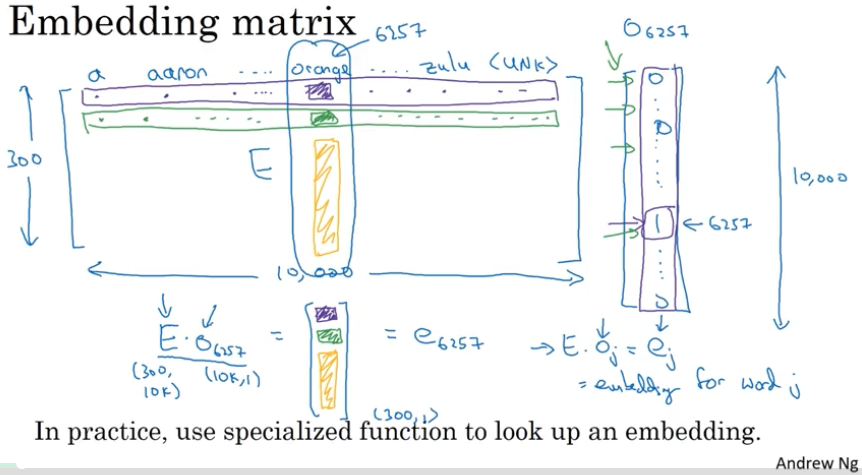 Embedding matrix
6257
O6257
a aaron .... orange .... zulu <UNK>
0
0
300
E
10,000
1 ← 6257
10,000
0
E · O6257 = = e6257 → E · Oj = ej
(300, 10K) (10K, 1)
= embedding for word j
(300, 1)
In practice, use specialized function to look up an embedding.
Andrew Ng